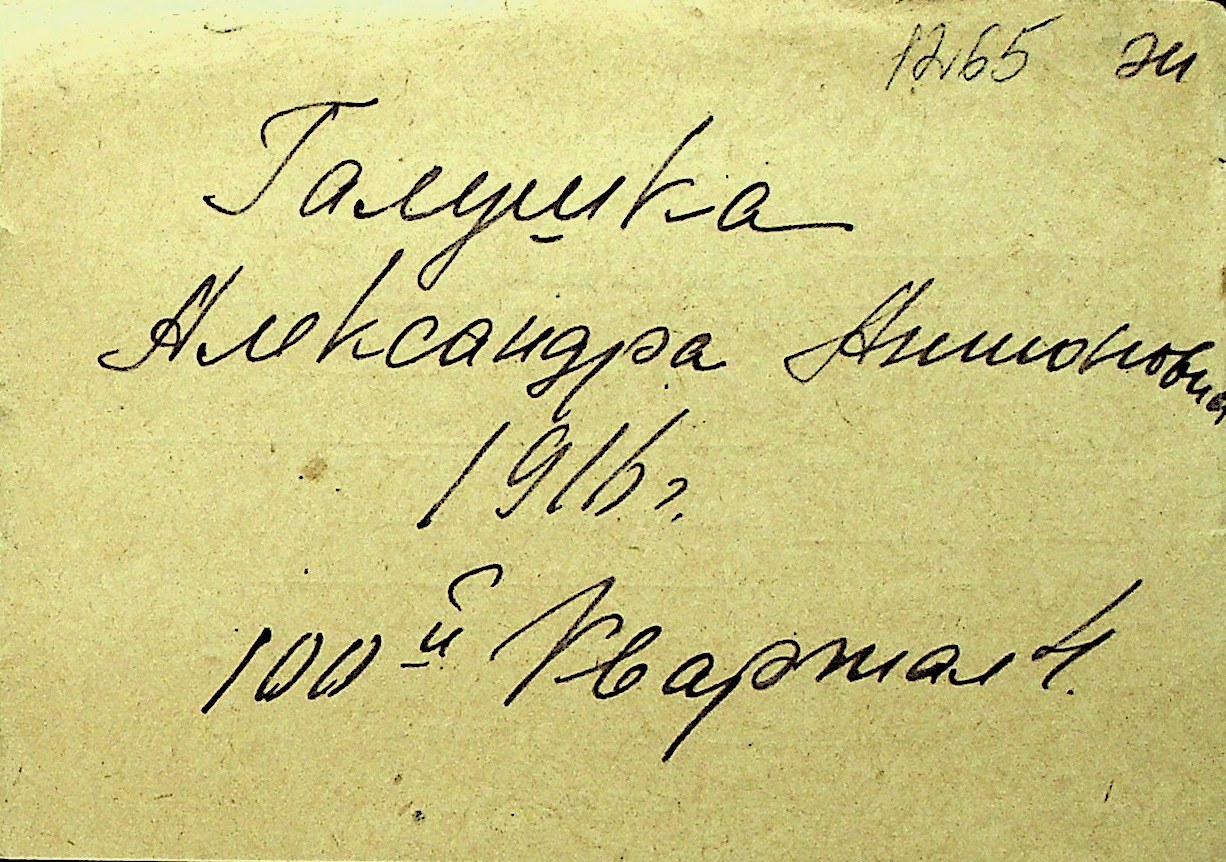 1265 эи
Галушка
Александра Антоновна
1916 г.
100й Квартал 4.